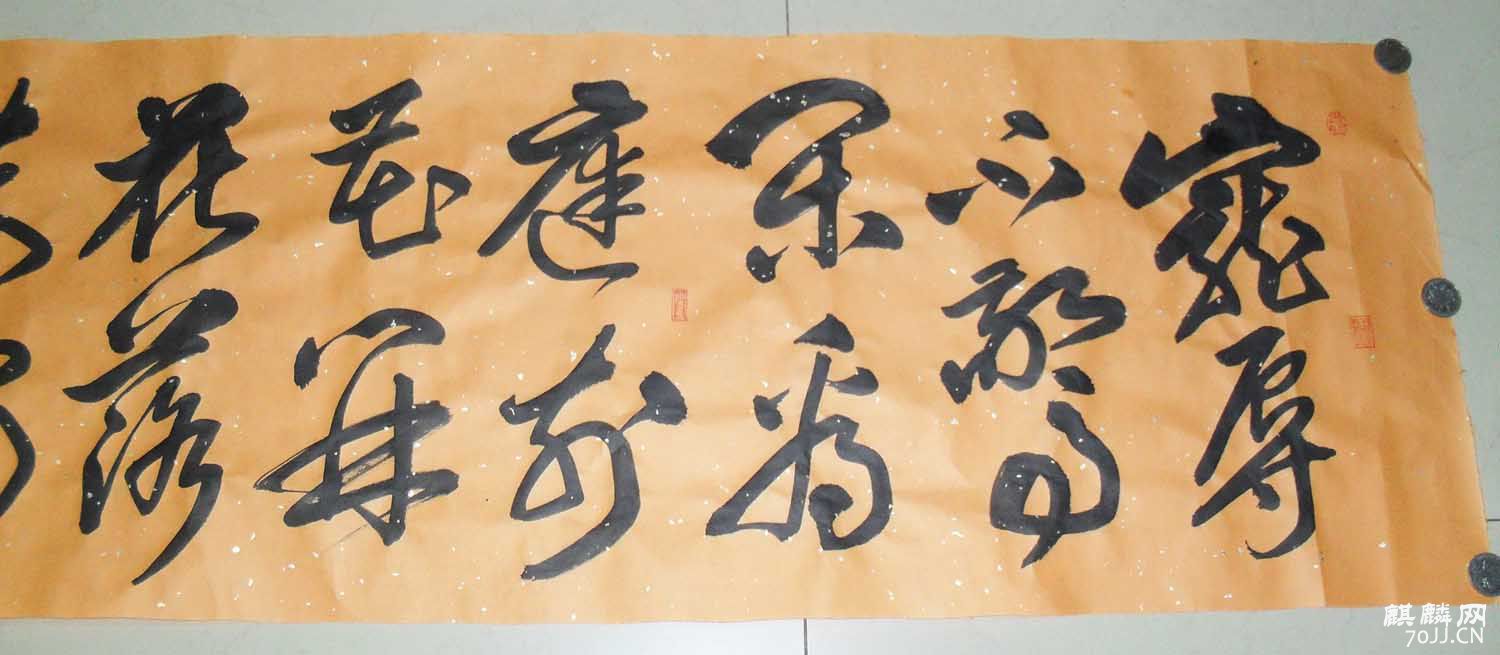 寵辱
不驚
閑看
庭前
花開
花落
麒麟网
70JJ.CN